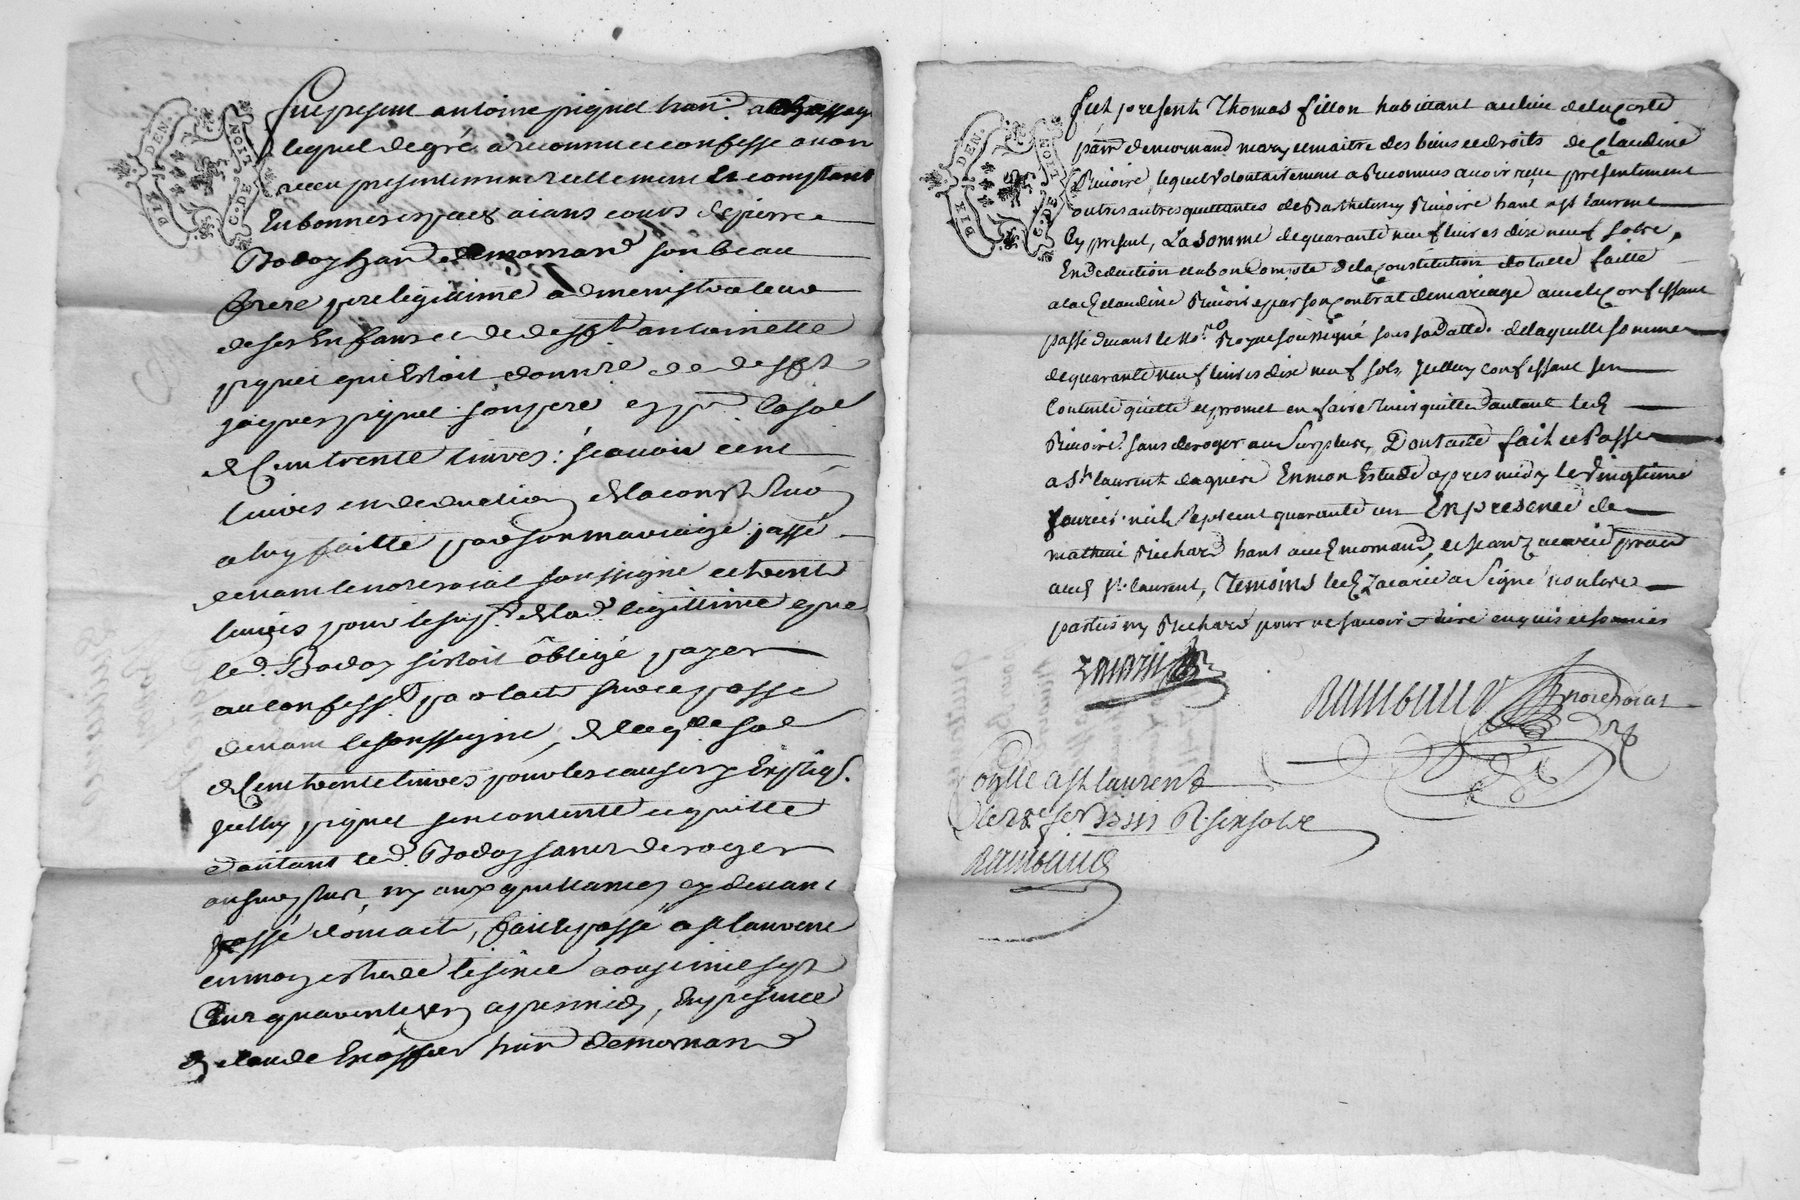 DIX DEN.
G. DE LION
fut present antoine pignet han.
lequel de gré a reconnu et confesse auoir
receu presentement reellement et comptant
En bonnes especes aians cours de pierre
Boday han de mornand son beau
frere pere legitime administrateur
de ses Enfans et de deffte antoinette
pignet qui Estoit donnre de defft
jacques pignet son pere
de Cent trente liures: scauoir cent
liures en deduction de la constituõn
a luy faitte par son mariage passé
deuant le no.re roial soussigne et trente
liures pour le sup.t de la d. legittime que
led. Boday s'estoit obligé payer
au confess.t par lacte sur ce passé
deuant le soussigne, de laq.lle
de Cent trente liures pour les causes
icelluy pignet sen contente et quitte
d'autant led. Boday sans deroger
au surplus ny aux quittances cy deuant
passé dont acte, fait et passé a st laurent
en mon estude le
Cent quarante apres midy, En presence
de claude han de mornand
DIX DEN.
G. DE LION
fut present Thomas fillon habittant au lieu de la coste
parr.e de mornand mary et maitre des biens et droits de Claudine
Riuoire, lequel volontairement a Reconnu auoir reçu presentement
outre autres quittances de Barthelemy Riuoire hant a st laurent
Cy present, La somme de quarante neuf liures dix neuf sols,
En deduction et a bon Compte de la Constitution dotalle faitte
a lad Claudine Riuoire par son Contrat de mariage auec le Confessant
passé deuant le No.re Royal soussigné sous sa datte. de laquelle somme
de quarante neuf liures dix neuf sols, Jcelluy confessant sen
Contente quitte et promet en faire tenir quitte d'autant led
Riuoire sans deroger au Surplus, Dont acte fait et Passé
a St laurent dagny En mon Estude apres midy le Vingtieme
feurier mil sept cent quarante un En presence de
mathieu Richard hant aud mornand, et jean zacarie
aud st. laurent, Temoins led Zacarie a Signé non lesd
parties ny Richard pour ne sauoir dire enquis et sommés
Zacarie
Rambaud no.re roial
Con.lle a st laurent
le
Rambaud